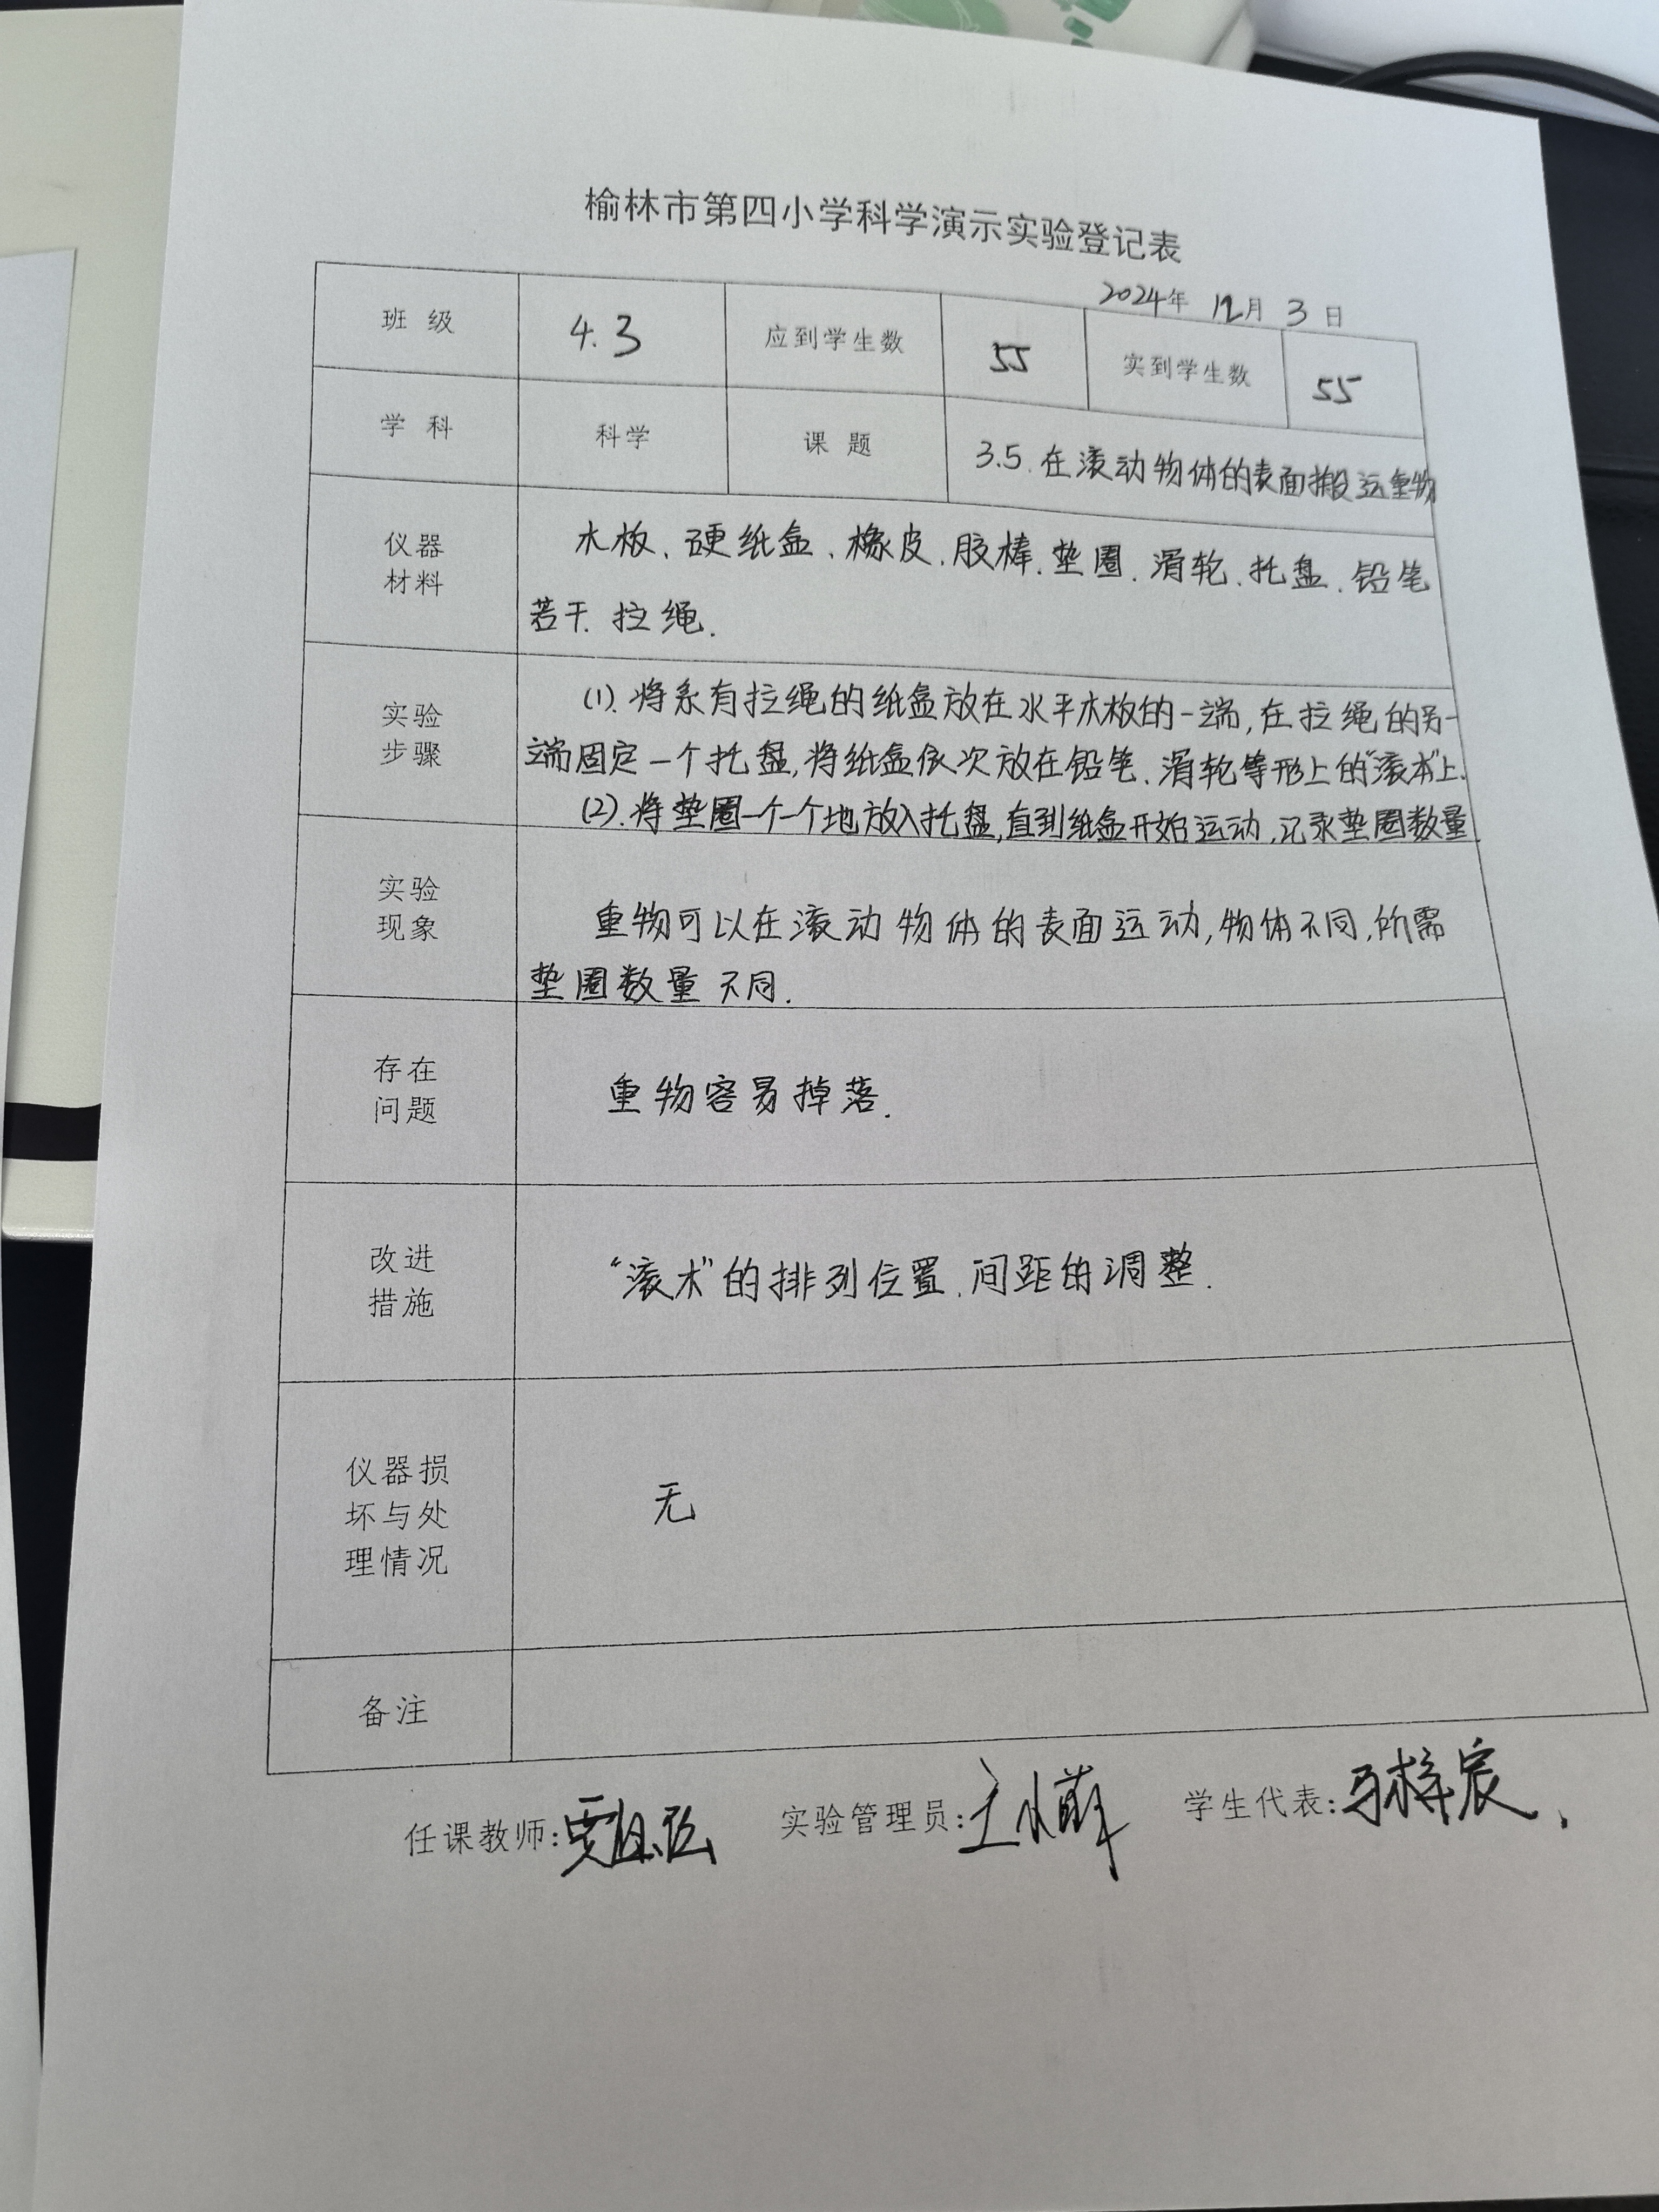 榆林市第四小学科学演示实验登记表
2024年 12月 3日
班 级 4.3 应到学生数 55 实到学生数 55
学 科 科学 课 题 3.5.在滚动物体的表面搬运重物
仪器
材料
木板、硬纸盒、橡皮、胶棒、垫圈、滑轮、托盘、铅笔
若干、拉绳.
实验
步骤
(1).将系有拉绳的纸盒放在水平木板的一端,在拉绳的另一
端固定一个托盘,将纸盒依次放在铅笔、滑轮等形上的“滚木”上.
(2).将垫圈一个一个地放入托盘,直到纸盒开始运动,记录垫圈数量.
实验
现象
重物可以在滚动物体的表面运动,物体不同,所需
垫圈数量不同.
存在
问题
重物容易掉落.
改进
措施
“滚木”的排列位置、间距的调整.
仪器损
坏与处
理情况
无
备注
任课教师: 实验管理员: 学生代表:马梓宸.